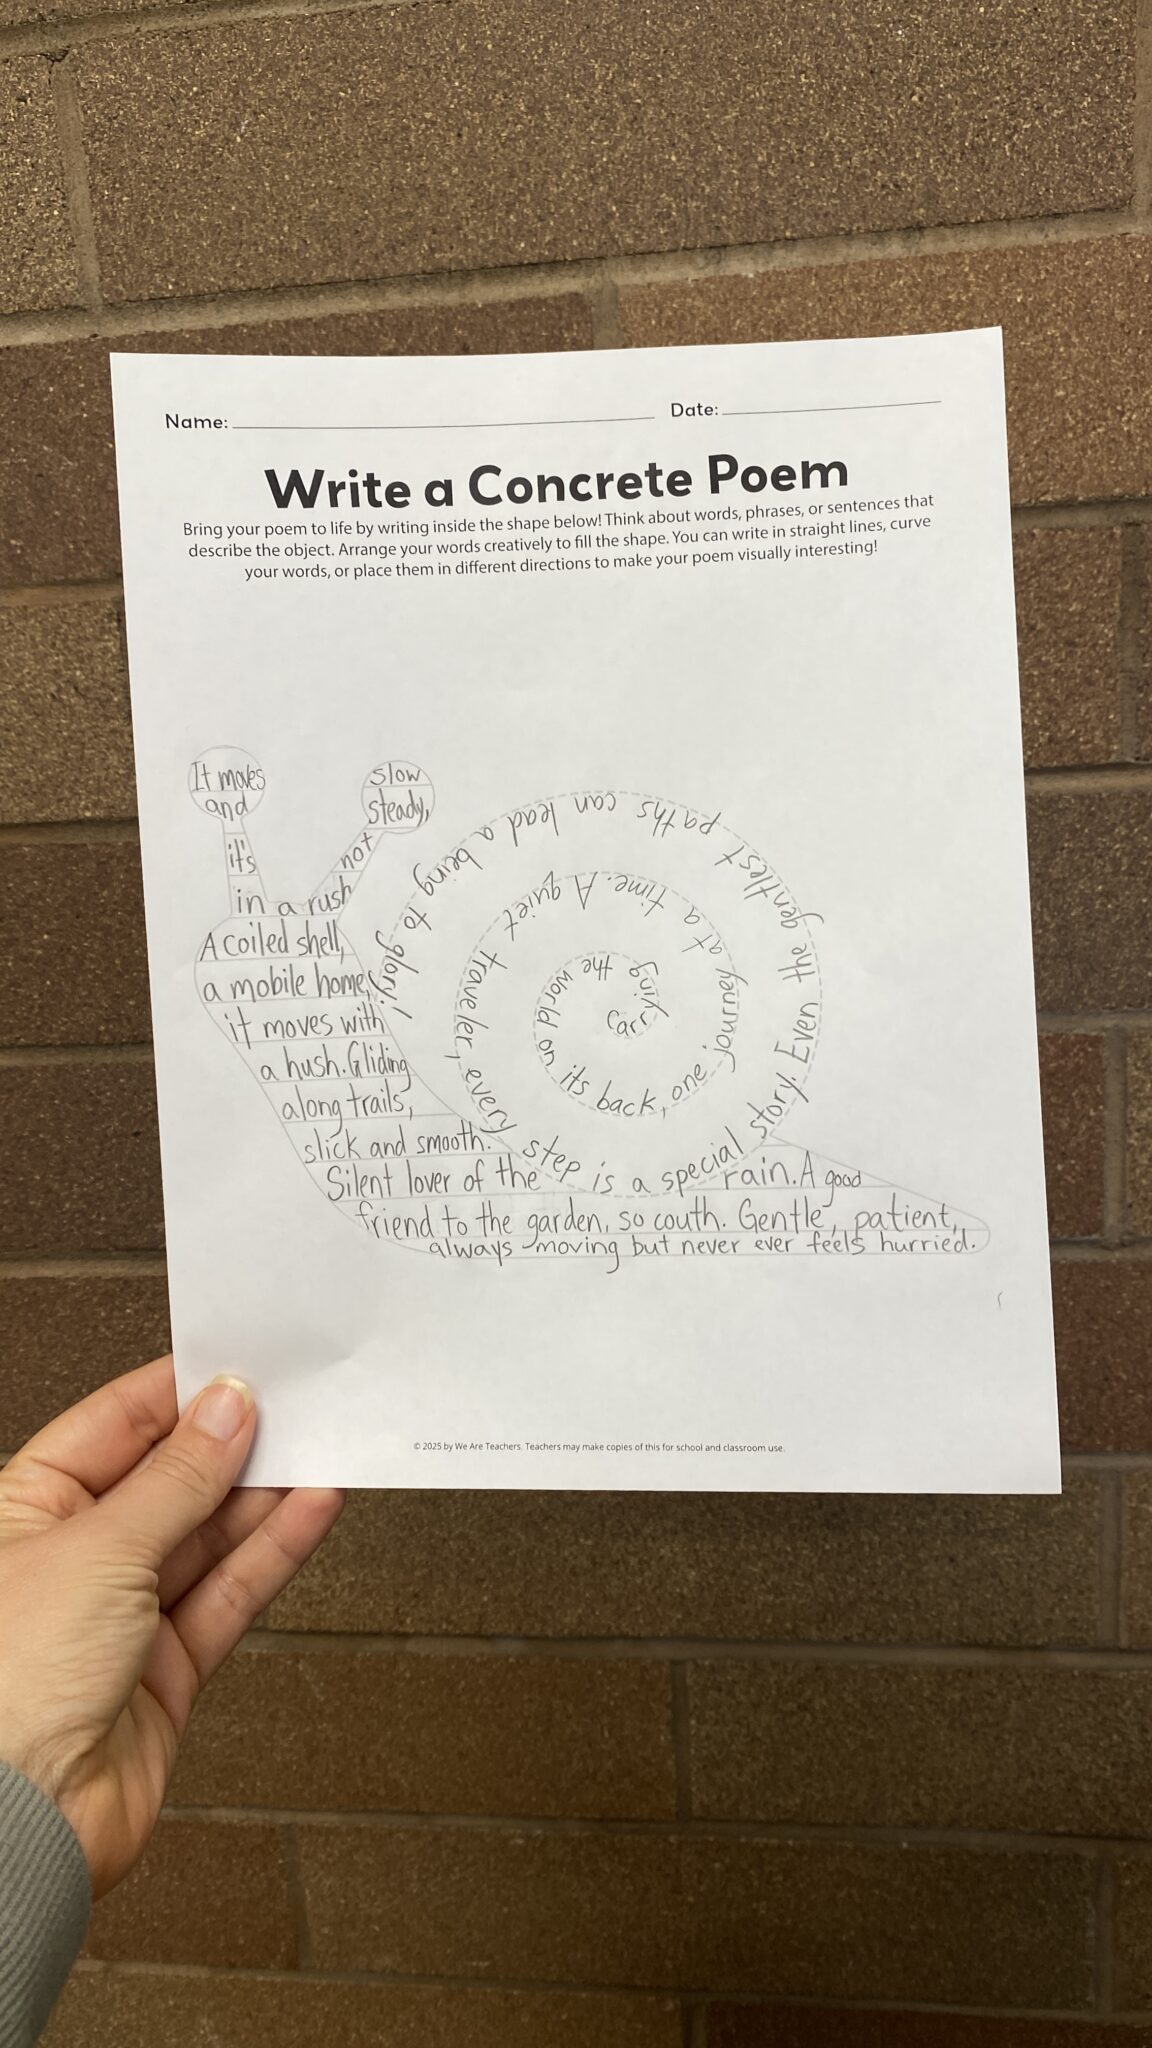 Name: Date:
Write a Concrete Poem
Bring your poem to life by writing inside the shape below! Think about words, phrases, or sentences that
describe the object. Arrange your words creatively to fill the shape. You can write in straight lines, curve
your words, or place them in different directions to make your poem visually interesting!
It moves slow
and steady,
it's not
in a rush
A coiled shell,
a mobile home,
it moves with
a hush. Gliding
along trails,
slick and smooth.
Silent lover of the rain. A good
friend to the garden, so couth. Gentle, patient,
always moving but never ever feels hurried.
Carrying the world on its back, one journey at a time. A quiet traveler, every step is a special story. Even the gentlest paths can lead a being to glory!
© 2025 by We Are Teachers. Teachers may make copies of this for school and classroom use.